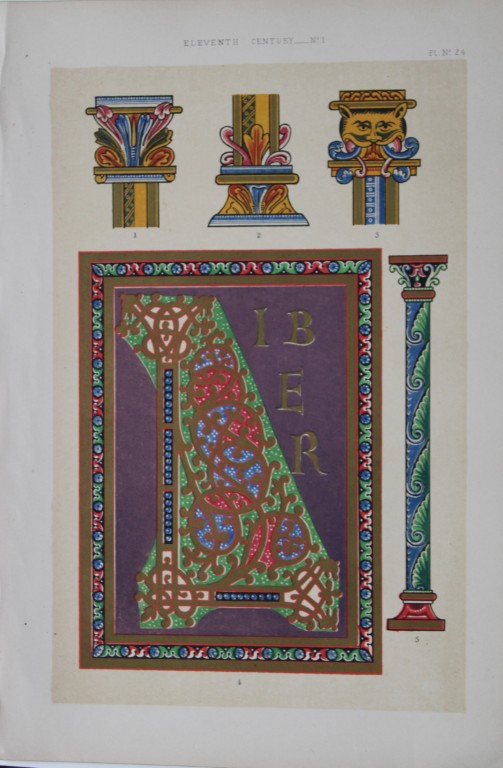 ELEVENTH CENTURY__Nº1
PL. Nº 24
1
2
3
L IBER
4
5